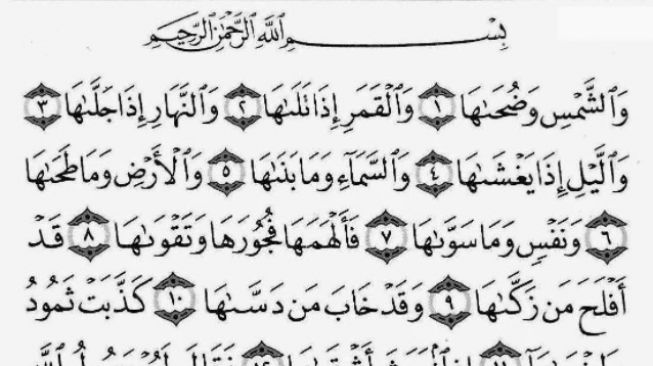 بِسْمِ ٱللَّهِ ٱلرَّحْمَٰنِ ٱلرَّحِيمِ
وَٱلشَّمْسِ وَضُحَىٰهَا ١ وَٱلْقَمَرِ إِذَا تَلَىٰهَا ٢ وَٱلنَّهَارِ إِذَا جَلَّىٰهَا ٣
وَٱلَّيْلِ إِذَا يَغْشَىٰهَا ٤ وَٱلسَّمَآءِ وَمَا بَنَىٰهَا ٥ وَٱلْأَرْضِ وَمَا طَحَىٰهَا
٦ وَنَفْسٍ وَمَا سَوَّىٰهَا ٧ فَأَلْهَمَهَا فُجُورَهَا وَتَقْوَىٰهَا ٨ قَدْ
أَفْلَحَ مَن زَكَّىٰهَا ٩ وَقَدْ خَابَ مَن دَسَّىٰهَا ١٠ كَذَّبَتْ ثَمُودُ